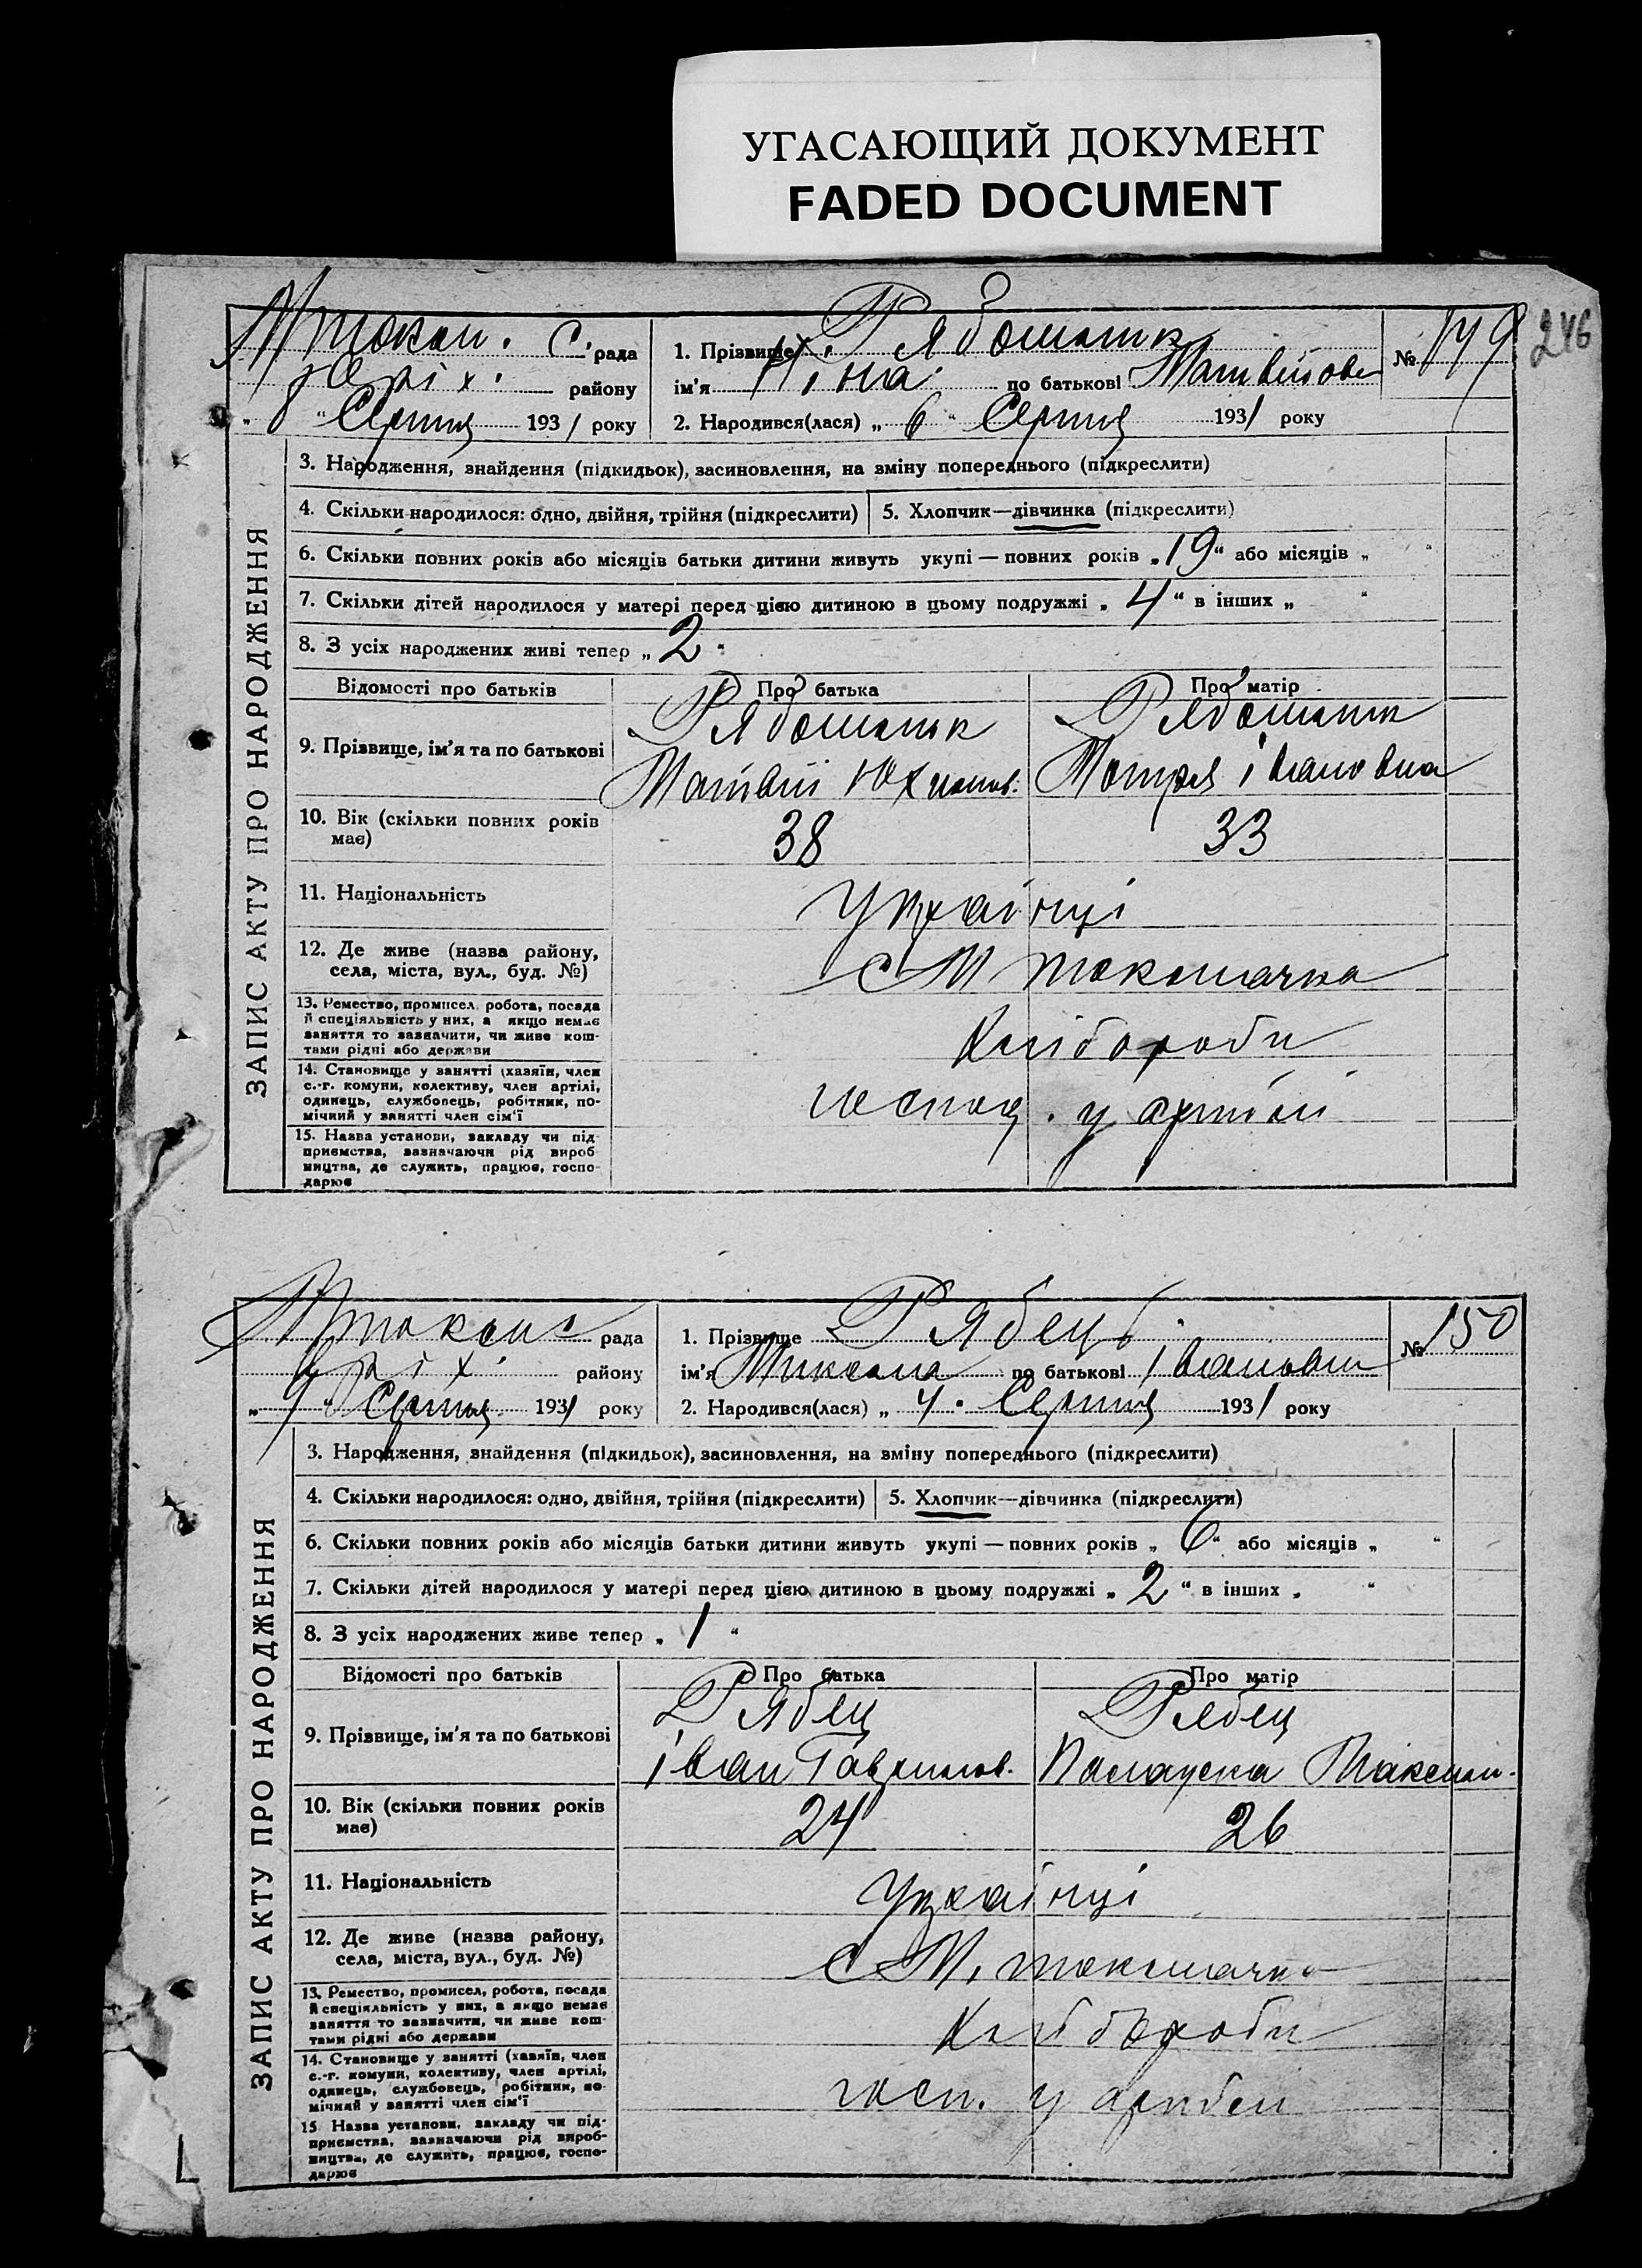 УГАСАЮЩИЙ ДОКУМЕНТ
FADED DOCUMENT
246
Мтокм. с. рада
Оріх. району
„8“ Серпня 1931 року
1. Прізвище Рябошапк
ім'я Ніна по батькові Матвійов
№ 149
2. Народився(лася) „6“ Серпня 1931 року
ЗАПИС АКТУ ПРО НАРОДЖЕННЯ
3. Народження, знайдення (підкидьок), засиновлення, на зміну попереднього (підкреслити)
4. Скільки народилося: одно, двійня, трійня (підкреслити) 5. Хлопчик—дівчинка (підкреслити)
6. Скільки повних років або місяців батьки дитини живуть укупі — повних років „19“ або місяців „ “
7. Скільки дітей народилося у матері перед цією дитиною в цьому подружжі „4“ в інших „ “
8. З усіх народжених живі тепер „2“
Відомості про батьків Про батька Про матір
9. Прізвище, ім'я та по батькові
Рябошапк
Матвій Юхимов.
Рябошапк
Мотря Івановна
10. Вік (скільки повних років
має)
38 33
11. Національність Українці
12. Де живе (назва району,
села, міста, вул., буд. №)
с М токмачка
13. Ремество, промисел, робота, посада
й спеціяльність у них, а якщо немає
заняття то зазначити, чи живе кош-
тами рідні або держави
Хліборобн
14. Становище у занятті (хазяїн, член
с.-г. комуни, колективу, член артілі,
одинець, службовець, робітник, по-
мічний у занятті член сім'ї
господ. у артілі
15. Назва установи, закладу чи під-
приємства, зазначаючи рід вироб
ництва, де служить, працює, госпо-
дарює
рада
Оріх. району
„9“ Серпня 1931 року
1. Прізвище Рябець
ім'я Микола по батькові Іванович
№ 150
2. Народився(лася) „4. Серпня 1931 року
ЗАПИС АКТУ ПРО НАРОДЖЕННЯ
3. Народження, знайдення (підкидьок), засиновлення, на зміну попереднього (підкреслити)
4. Скільки народилося: одно, двійня, трійня (підкреслити) 5. Хлопчик—дівчинка (підкреслити)
6. Скільки повних років або місяців батьки дитини живуть укупі — повних років „6“ або місяців „ “
7. Скільки дітей народилося у матері перед цією дитиною в цьому подружжі „2“ в інших „ “
8. З усіх народжених живе тепер „1“
Відомості про батьків Про батька Про матір
9. Прізвище, ім'я та по батькові
Рябец
Іван Гаврилов.
Рябец
Палажка Максим.
10. Вік (скільки повних років
має)
24 26
11. Національність Українці
12. Де живе (назва району,
села, міста, вул., буд. №)
с М. токмачка
13. Ремество, промисел, робота, посада
й спеціяльність у них, а якщо немає
заняття то зазначити, чи живе кош-
тами рідні або держави
Хліборобн
14. Становище у занятті (хазяїн, член
с.-г. комуни, колективу, член артілі,
одинець, службовець, робітник, по-
мічний у занятті член сім'ї
госп. у артілі
15 Назва установи, закладу чи під-
приємства, зазначаючи рід вироб-
ництва, де служить, працює, госпо-
дарює